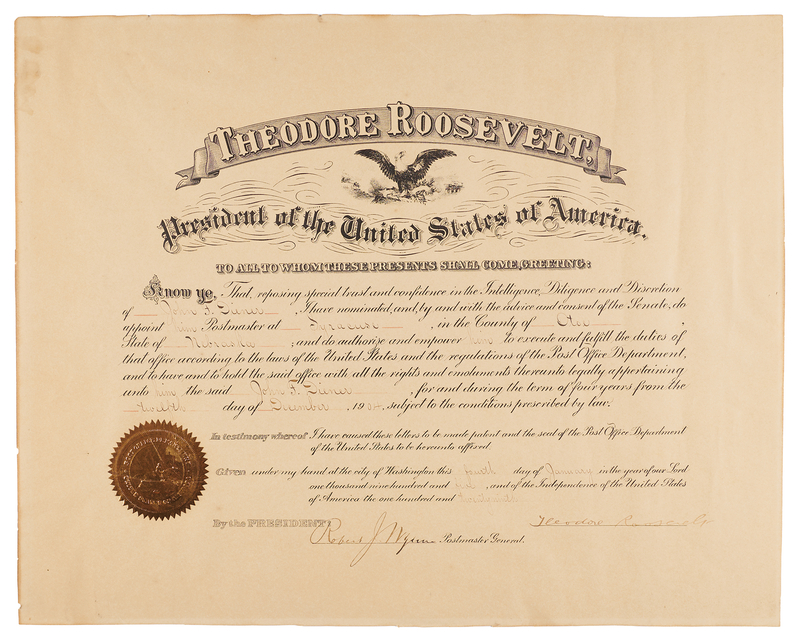 THEODORE ROOSEVELT,
President of the United States of America.
TO ALL TO WHOM THESE PRESENTS SHALL COME, GREETING:
Know ye, That, reposing special trust and confidence in the Intelligence, Diligence and Discretion
of John F. Diener, I have nominated, and, by and with the advice and consent of the Senate, do
appoint him Postmaster at Syracuse, in the County of Otoe,
State of Nebraska; and do authorize and empower him to execute and fulfill the duties of
that office according to the laws of the United States and the regulations of the Post Office Department,
and to have and to hold the said office with all the rights and emoluments thereunto legally appertaining
unto him the said John F. Diener, for and during the term of four years from the
twelfth day of December, 1904, subject to the conditions prescribed by law.
In testimony whereof I have caused these letters to be made patent and the seal of the Post Office Department
of the United States to be hereunto affixed.
Given under my hand at the city of Washington this fourth day of January in the year of our Lord
one thousand nine hundred and five, and of the Independence of the United States
of America the one hundred and
By the PRESIDENT:
Theodore Roosevelt
Robert J Wynne Postmaster General.